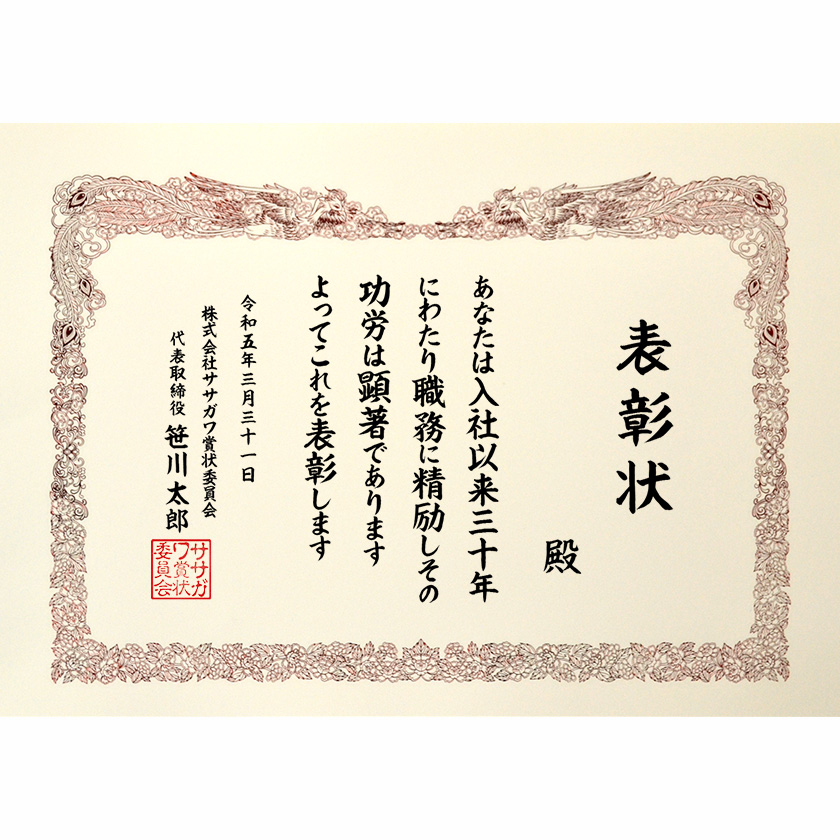 表彰状
殿
あなたは入社以来三十年
にわたり職務に精励しその
功労は顕著であります
よってこれを表彰します
令和五年三月三十一日
株式会社ササガワ賞状委員会
代表取締役 笹川太郎
ササガ
ワ賞状
委員会